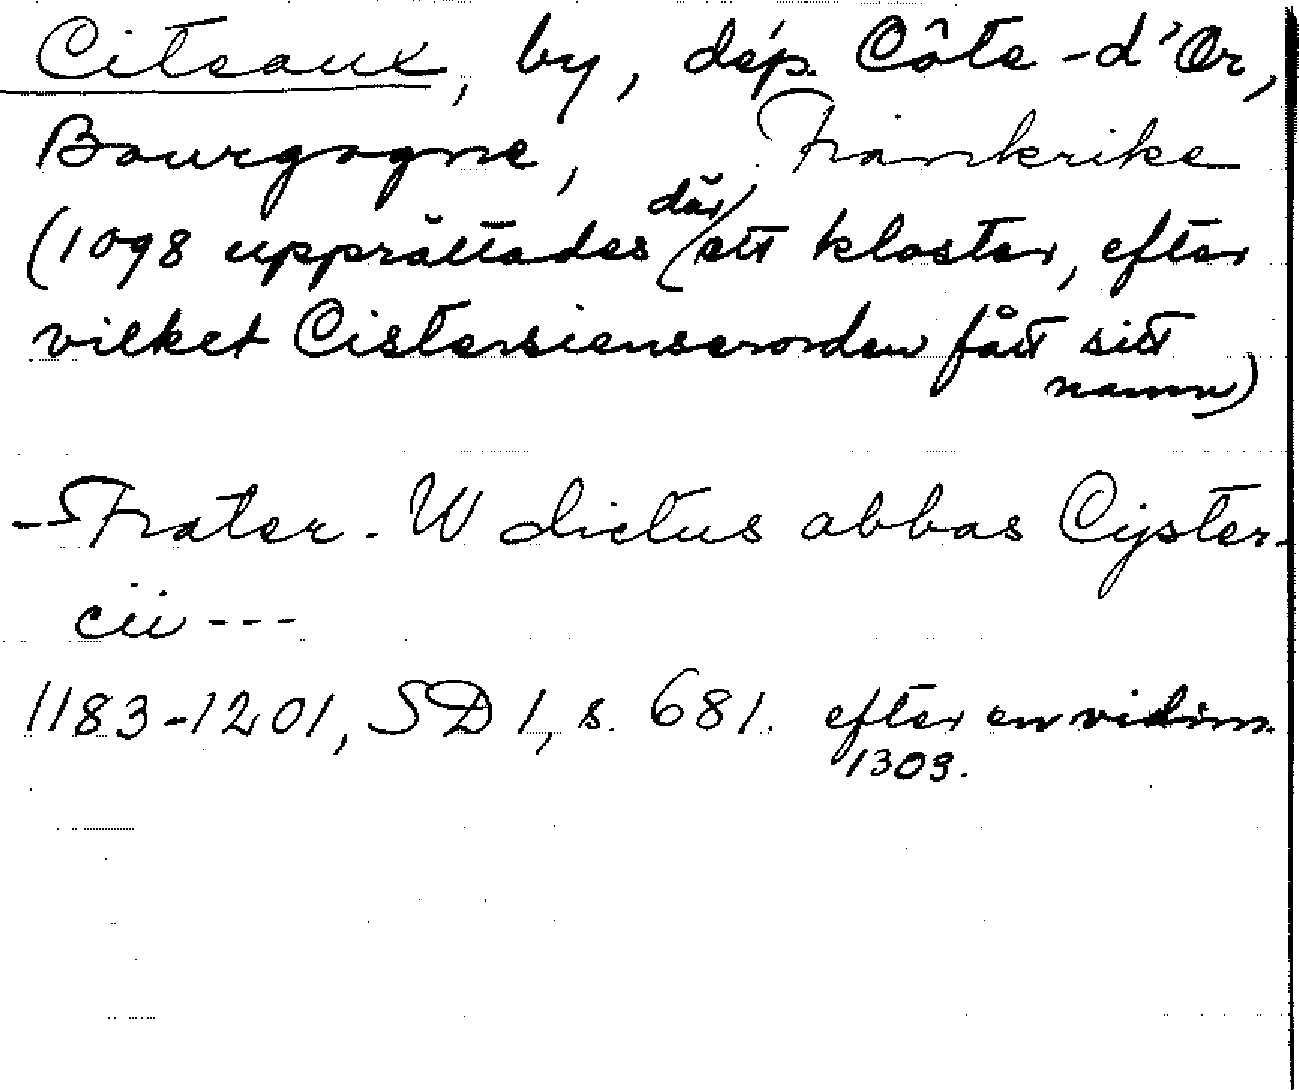 Citeaux, by, dép. Côte-d'Or,
Bourgogne, Frankrike
(1098 upprättades där ett kloster, efter
vilket Cistersienserorden fått sitt
namn)
- Frater. W dictus abbas Cyster-
cii ---
1183-1201, SD 1, s. 681. efter en vidim.
1309.